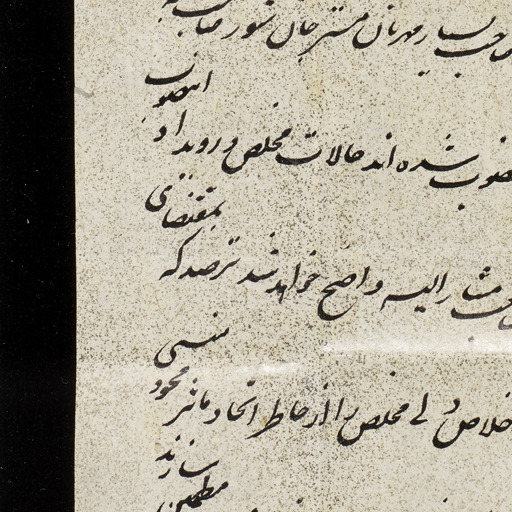 صاحب بسیار مهربان مستر جان شور صاحب
انصوب
صوب شده اند حالات مخلص و رویداد
بمقتضای
مشار الیه واضح خواهد شد ترصد که
منسی
اخلاص دلی مخلص را از خاطر اتحاد ماثر محو
سازند
مطمئن